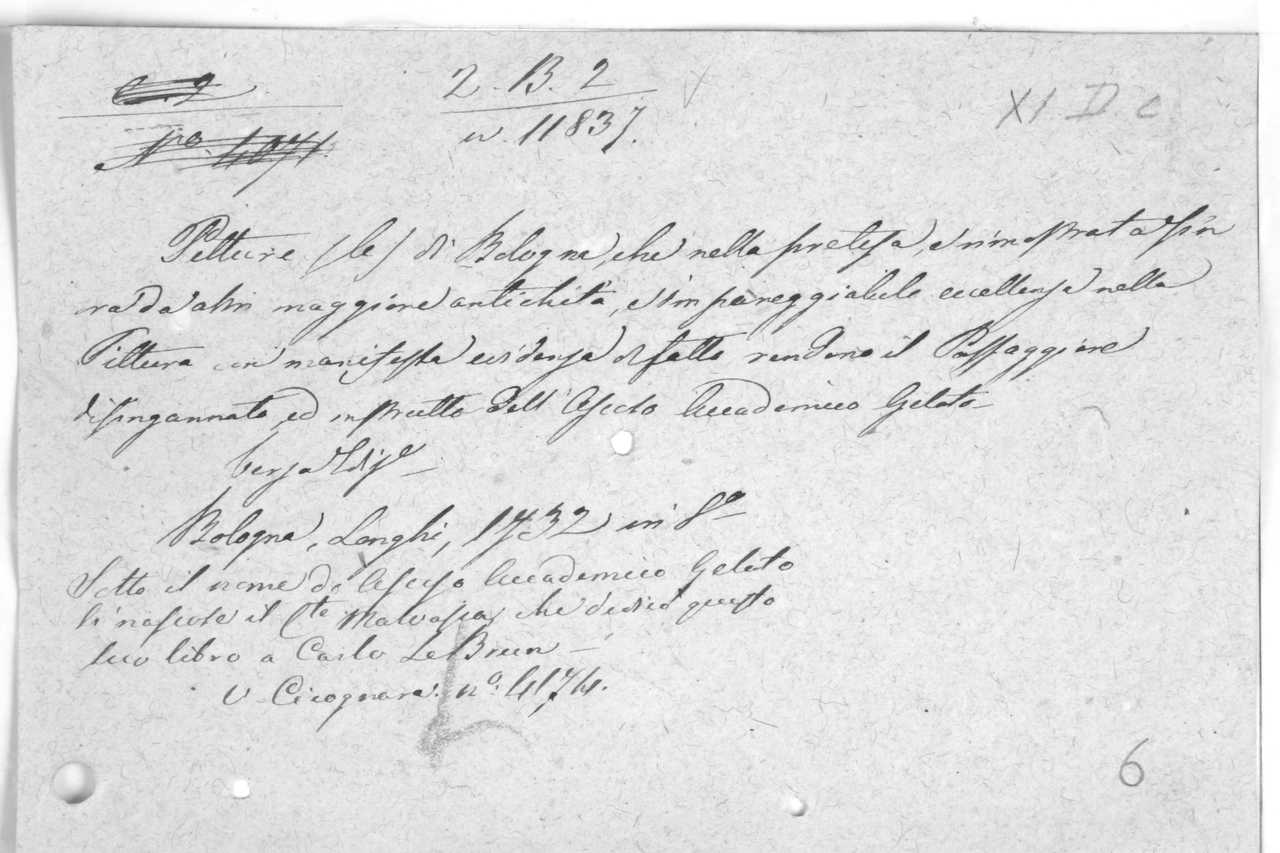 2. B. 2
n. 11837.
XI D. c
Pitture (le) di Bologna, che nella pretesa, e rimostrata sin
ra da altri maggiore antichità, e impareggiabile eccellenza nella
Pittura con manifesta evidenza di fatto rendono il Passaggiere
disingannato, ed instrutto dell' Ascoso Accademico Gelato
terza Ediz.e
Bologna, Longhi, 1732 in 8.o
Sotto il nome di Ascoso Accademico Gelato
si nascose il Cte Malvasia, che dedicò questo
suo libro a Carlo Le Brun —
V. Cicognara. n.o: 4174.
6